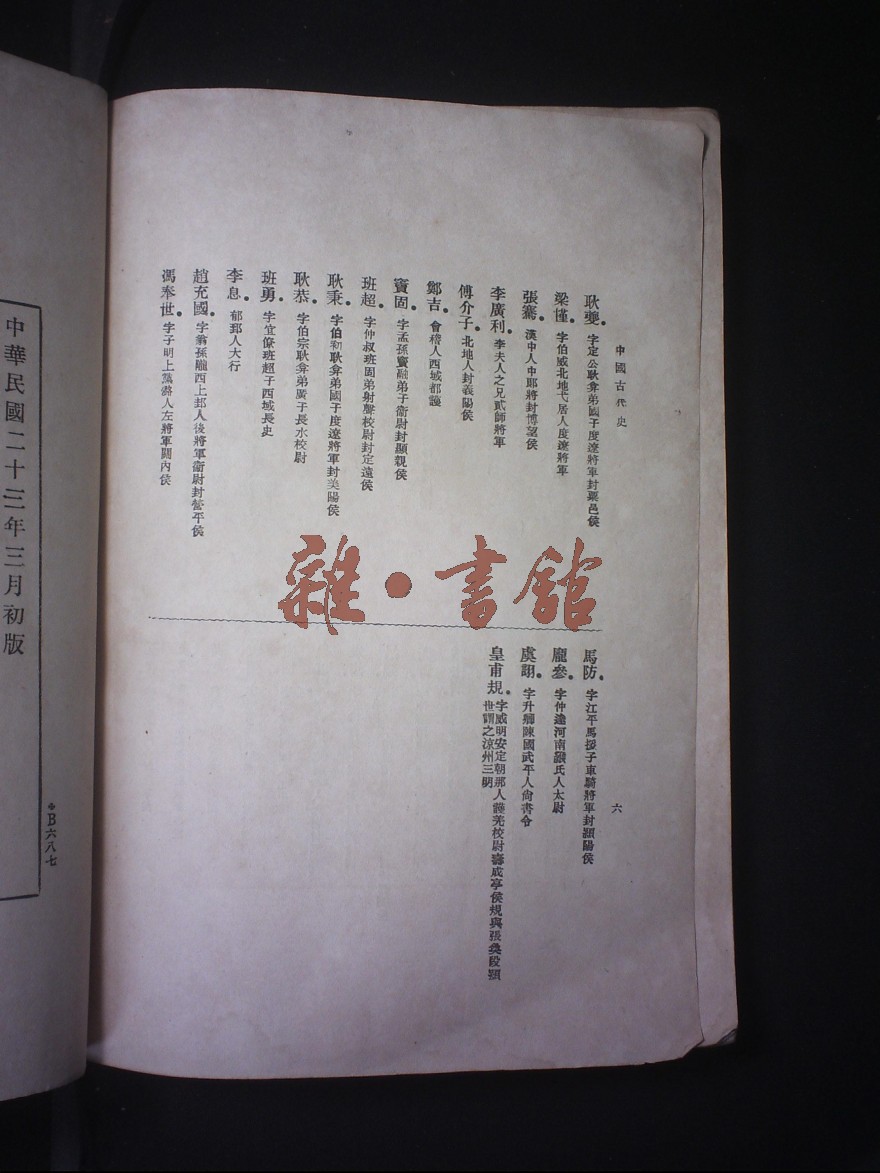 中國古代史
六
耿夔。字定公耿弇弟國子度遼將軍封粟邑侯
梁慬。字伯威北地弋居人度遼將軍
張騫。漢中人中郎將封博望侯
李廣利。李夫人之兄貳師將軍
傅介子。北地人封義陽侯
鄭吉。會稽人西域都護
竇固。字孟孫竇融弟子衞尉封顯親侯
班超。字仲叔班固弟射聲校尉封定遠侯
耿秉。字伯初耿弇弟國子度遼將軍封美陽侯
耿恭。字伯宗耿弇弟廣子長水校尉
班勇。字宜僚班超子西域長史
李息。郁郅人大行
趙充國。字翁孫隴西上邽人後將軍衞尉封營平侯
馮奉世。字子明上黨潞人左將軍關內侯
馬防。字江平馬援子車騎將軍封潁陽侯
龐參。字仲達河南緱氏人太尉
虞詡。字升卿陳國武平人尙書令
皇甫規。字威明安定朝那人護羌校尉壽成亭侯規與張奐段熲
世謂之涼州三明
雜·書館
中華民國二十三年三月初版
＊B六八七